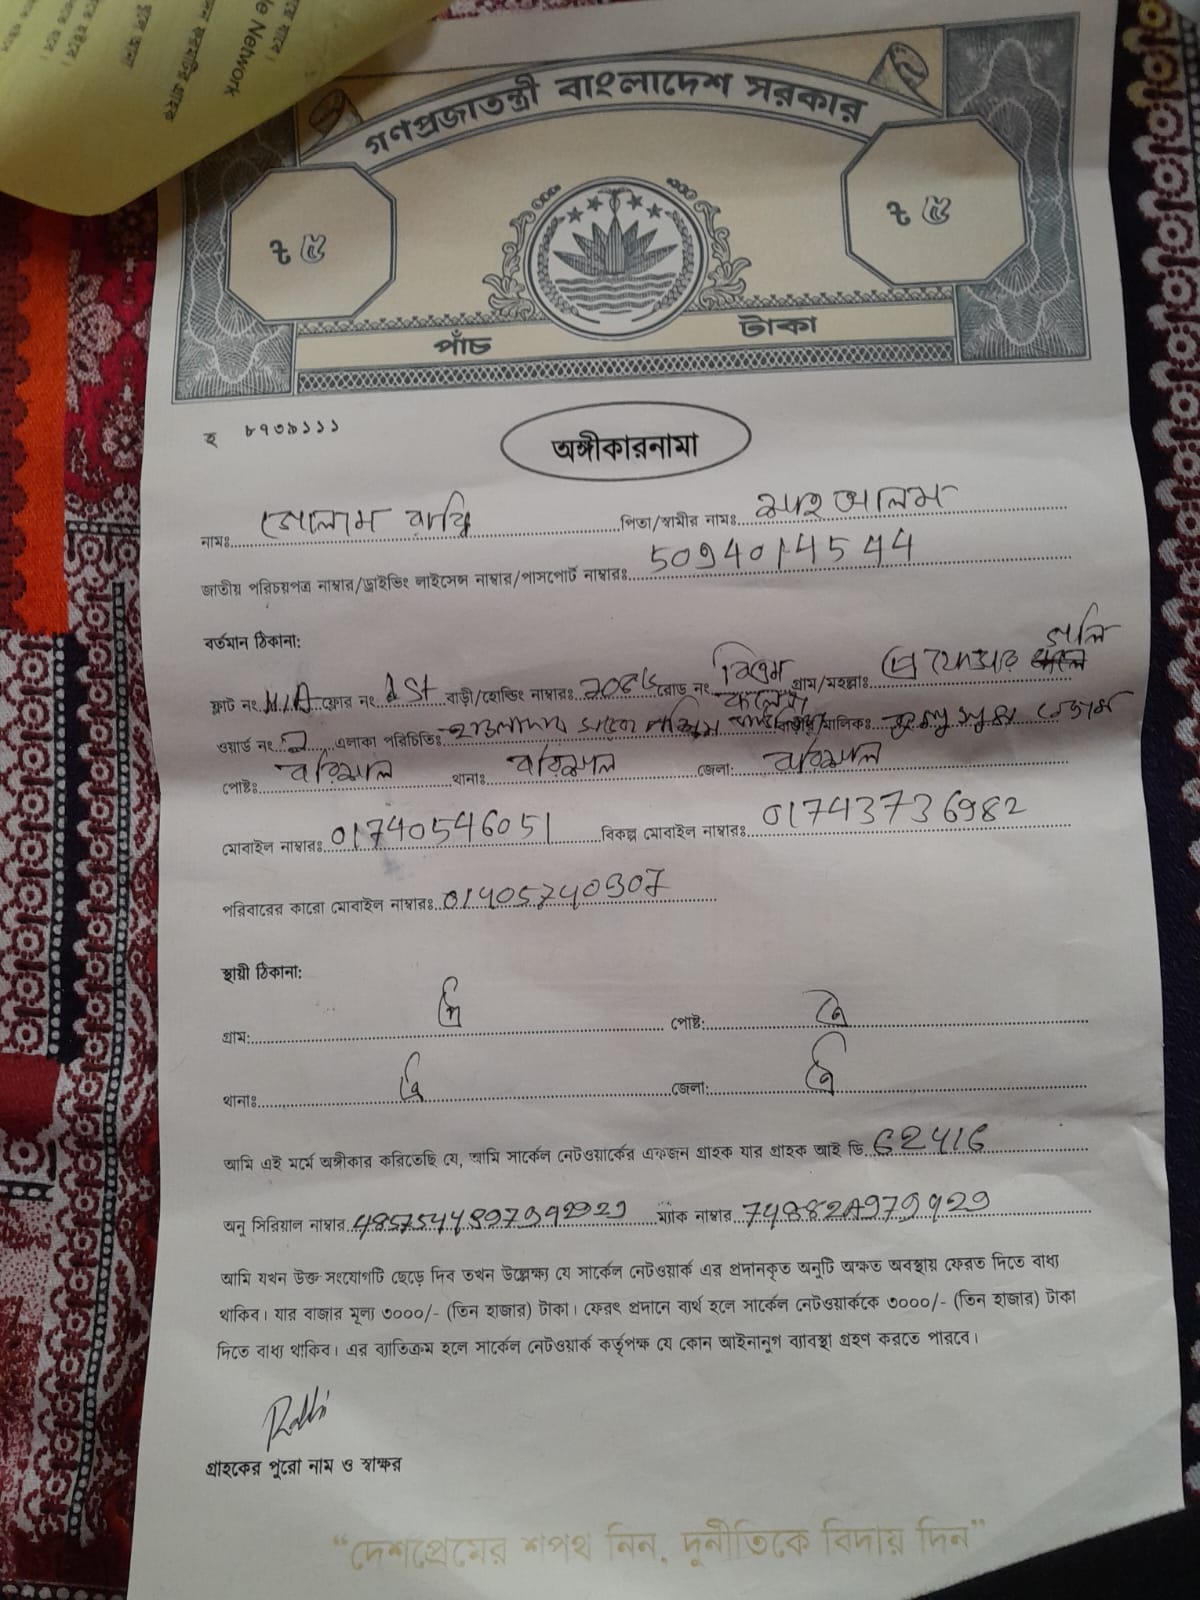 গণপ্রজাতন্ত্রী বাংলাদেশ সরকার
৳ ৫
৳ ৫
পাঁচ টাকা
হ ৮৭৩৯১১১
অঙ্গীকারনামা
নামঃ গোলাম রাব্বি পিতা/স্বামীর নামঃ শাহ আলম
জাতীয় পরিচয়পত্র নাম্বার/ড্রাইভিং লাইসেন্স নাম্বার/পাসপোর্ট নাম্বারঃ 5094014544
বর্তমান ঠিকানা:
ফ্লাট নং N/A ফ্লোর নং 1st বাড়ী/হোল্ডিং নাম্বারঃ রোড নং বিএম কলেজ গ্রাম/মহল্লাঃ প্রফেসার গলি
ওয়ার্ড নং এলাকা পরিচিতিঃ বাড়ীর মালিকঃ বেগম
পোষ্টঃ বরিশাল থানাঃ বরিশাল জেলা: বরিশাল
মোবাইল নাম্বারঃ 01740546051 বিকল্প মোবাইল নাম্বারঃ 01743736982
পরিবারের কারো মোবাইল নাম্বারঃ
স্থায়ী ঠিকানা:
গ্রাম: ঐ পোষ্ট: ঐ
থানাঃ ঐ জেলা: ঐ
আমি এই মর্মে অঙ্গীকার করিতেছি যে, আমি সার্কেল নেটওয়ার্কের একজন গ্রাহক যার গ্রাহক আই ডি
অনু সিরিয়াল নাম্বার ম্যাক নাম্বার
আমি যখন উক্ত সংযোগটি ছেড়ে দিব তখন উল্লেক্ষ্য যে সার্কেল নেটওয়ার্ক এর প্রদানকৃত অনুটি অক্ষত অবস্থায় ফেরত দিতে বাধ্য
থাকিব। যার বাজার মূল্য ৩০০০/- (তিন হাজার) টাকা। ফেরৎ প্রদানে ব্যর্থ হলে সার্কেল নেটওয়ার্ককে ৩০০০/- (তিন হাজার) টাকা
দিতে বাধ্য থাকিব। এর ব্যতিক্রম হলে সার্কেল নেটওয়ার্ক কর্তৃপক্ষ যে কোন আইনানুগ ব্যাবস্থা গ্রহণ করতে পারবে।
Rabbi
গ্রাহকের পুরো নাম ও স্বাক্ষর
"দেশপ্রেমের শপথ নিন, দুর্নীতিকে বিদায় দিন"